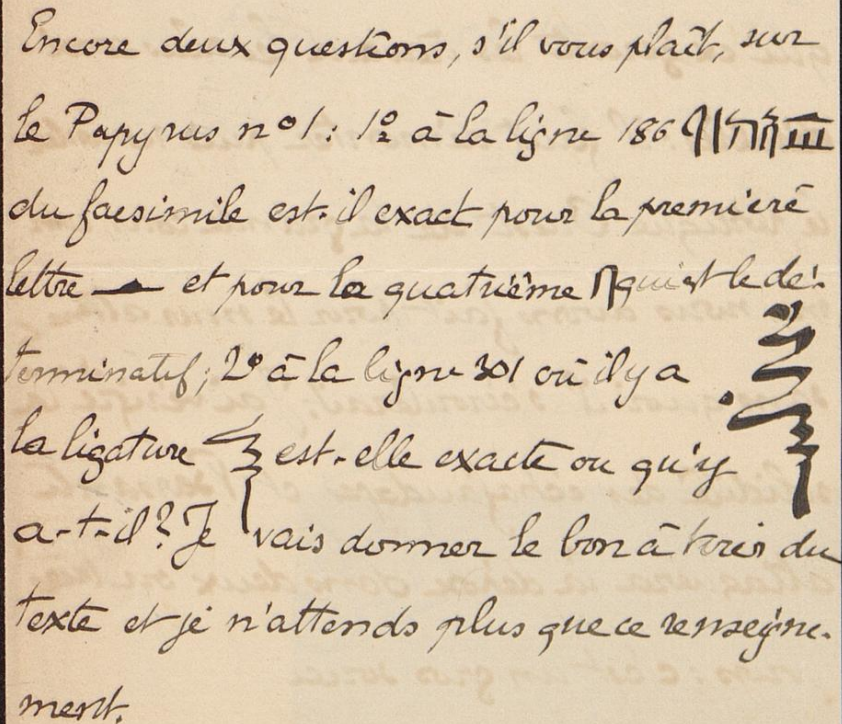 Encore deux questions, s'il vous plaît, sur
le Papyrus nº 1 : 1º à la ligne 186
du facsimile est-il exact pour la première
lettre et pour la quatrième qui est le dé-
terminatif; 2º à la ligne 301 où il y a
la ligature est-elle exacte ou qu'y
a-t-il? Je vais donner le bon à tirer du
texte et je n'attends plus que ce renseigne-
ment.